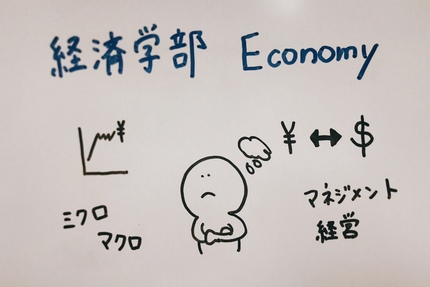 経済学部 Economy
¥
¥ ↔ $
ミクロ
マクロ
マネジメント
経営